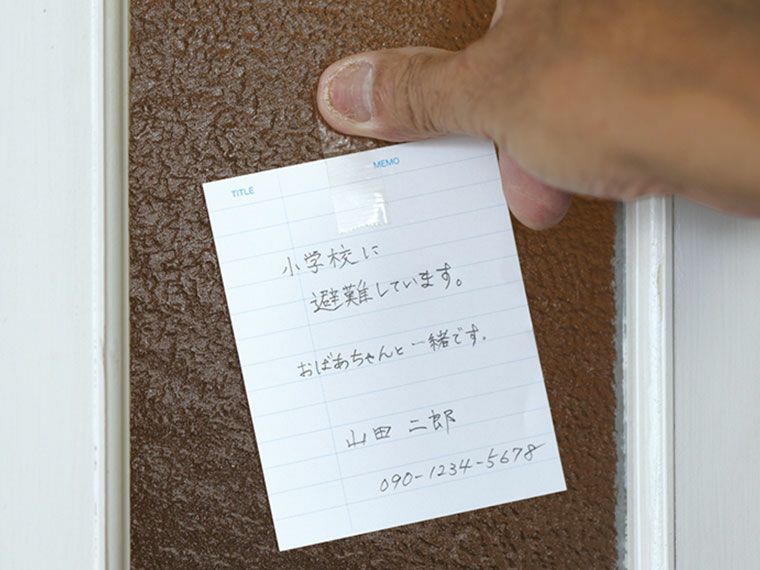 TITLE MEMO
小学校に
避難しています。
おばあちゃんと一緒です。
山田 二郎
090-1234-5678